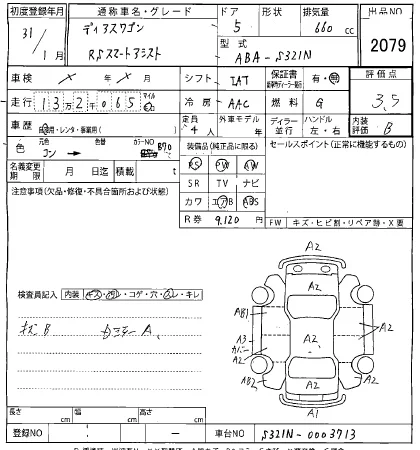 初度登録年月 通称車名・グレード ドア 形状 排気量 出品NO
31/1月 ディアスワゴン 5 660 cc
RSスマートアシスト 型式 ABA-S321N 2079
車検 × 年 × 月 シフト IAT 保証書 有・無 評価点
走行 13万2千065 マイル 冷房 AAC 燃料 G 3.5
車歴 自家用・レンタ・事業用( ) 定員 4人 外車モデル 年 ディラー 並行 ハンドル 左・右 内装評価 B
色 元色 コン → 色替 カラーNO B70 装備品(純正品に限る) セールスポイント(正常に機能するもの)
名義変更期限 月 日迄 積載 t PS PW AW
注意事項(欠品・修復・不具合箇所および状態) SR TV ナビ
カワ エアB ABS
R券 9,120円 FW キズ・ヒビ割・リペア跡・X要
検査員記入 内装 キズ・汚レ・コゲ・穴・スレ・キレ
キズB
A2
AB1
A2
A2
A3
カバー
A2
A2
AB2
A2
A1
長さ cm 幅 cm 高さ cm
登録NO : - 車台NO S321N-0003713